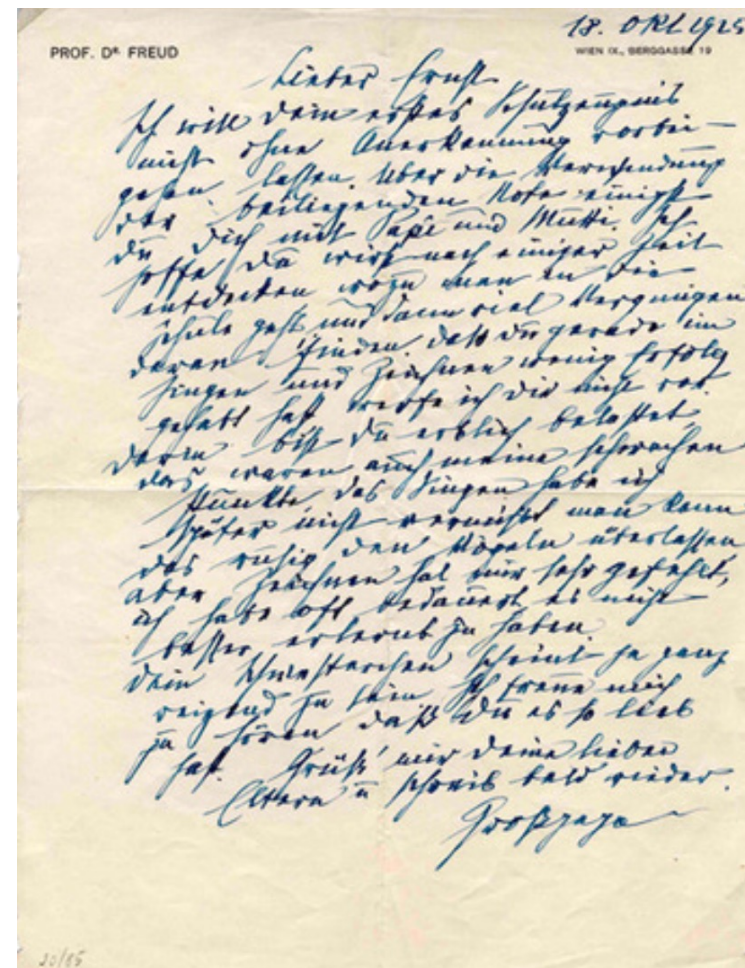 18. Okt 1925
PROF. DR. FREUD
WIEN IX., BERGGASSE 19
Lieber Ernst
Ich will Dein erstes Schulzeugnis
nicht ohne Anerkennung vorbei-
gehen lassen. Über die Verwendung
der beiliegenden Note einigst
Du Dich mit Papi und Mutti. Ich
hoffe Du wirst nach einiger Zeit
entdecken wozu man in die
Schule geht und dann viel Vergnügen
daran finden. Daß Du gerade im
Singen und Zeichnen wenig Erfolg
gehabt hast werfe ich Dir nicht vor.
Darin bist Du erblich belastet,
das waren auch meine schwachen
Punkte, das Singen habe ich
später nicht vermißt man kann
das ruhig den Vögeln überlassen
aber Zeichnen hat mir sehr gefehlt,
ich habe oft bedauert es nicht
besser erlernt zu haben.
Dein Schwesterchen scheint ja ganz
reizend zu sein. Ich freue mich
zu hören daß Du es so lieb
hast. Grüß' mir Deine lieben
Eltern u schreib bald wieder.
Großpapa
20/85